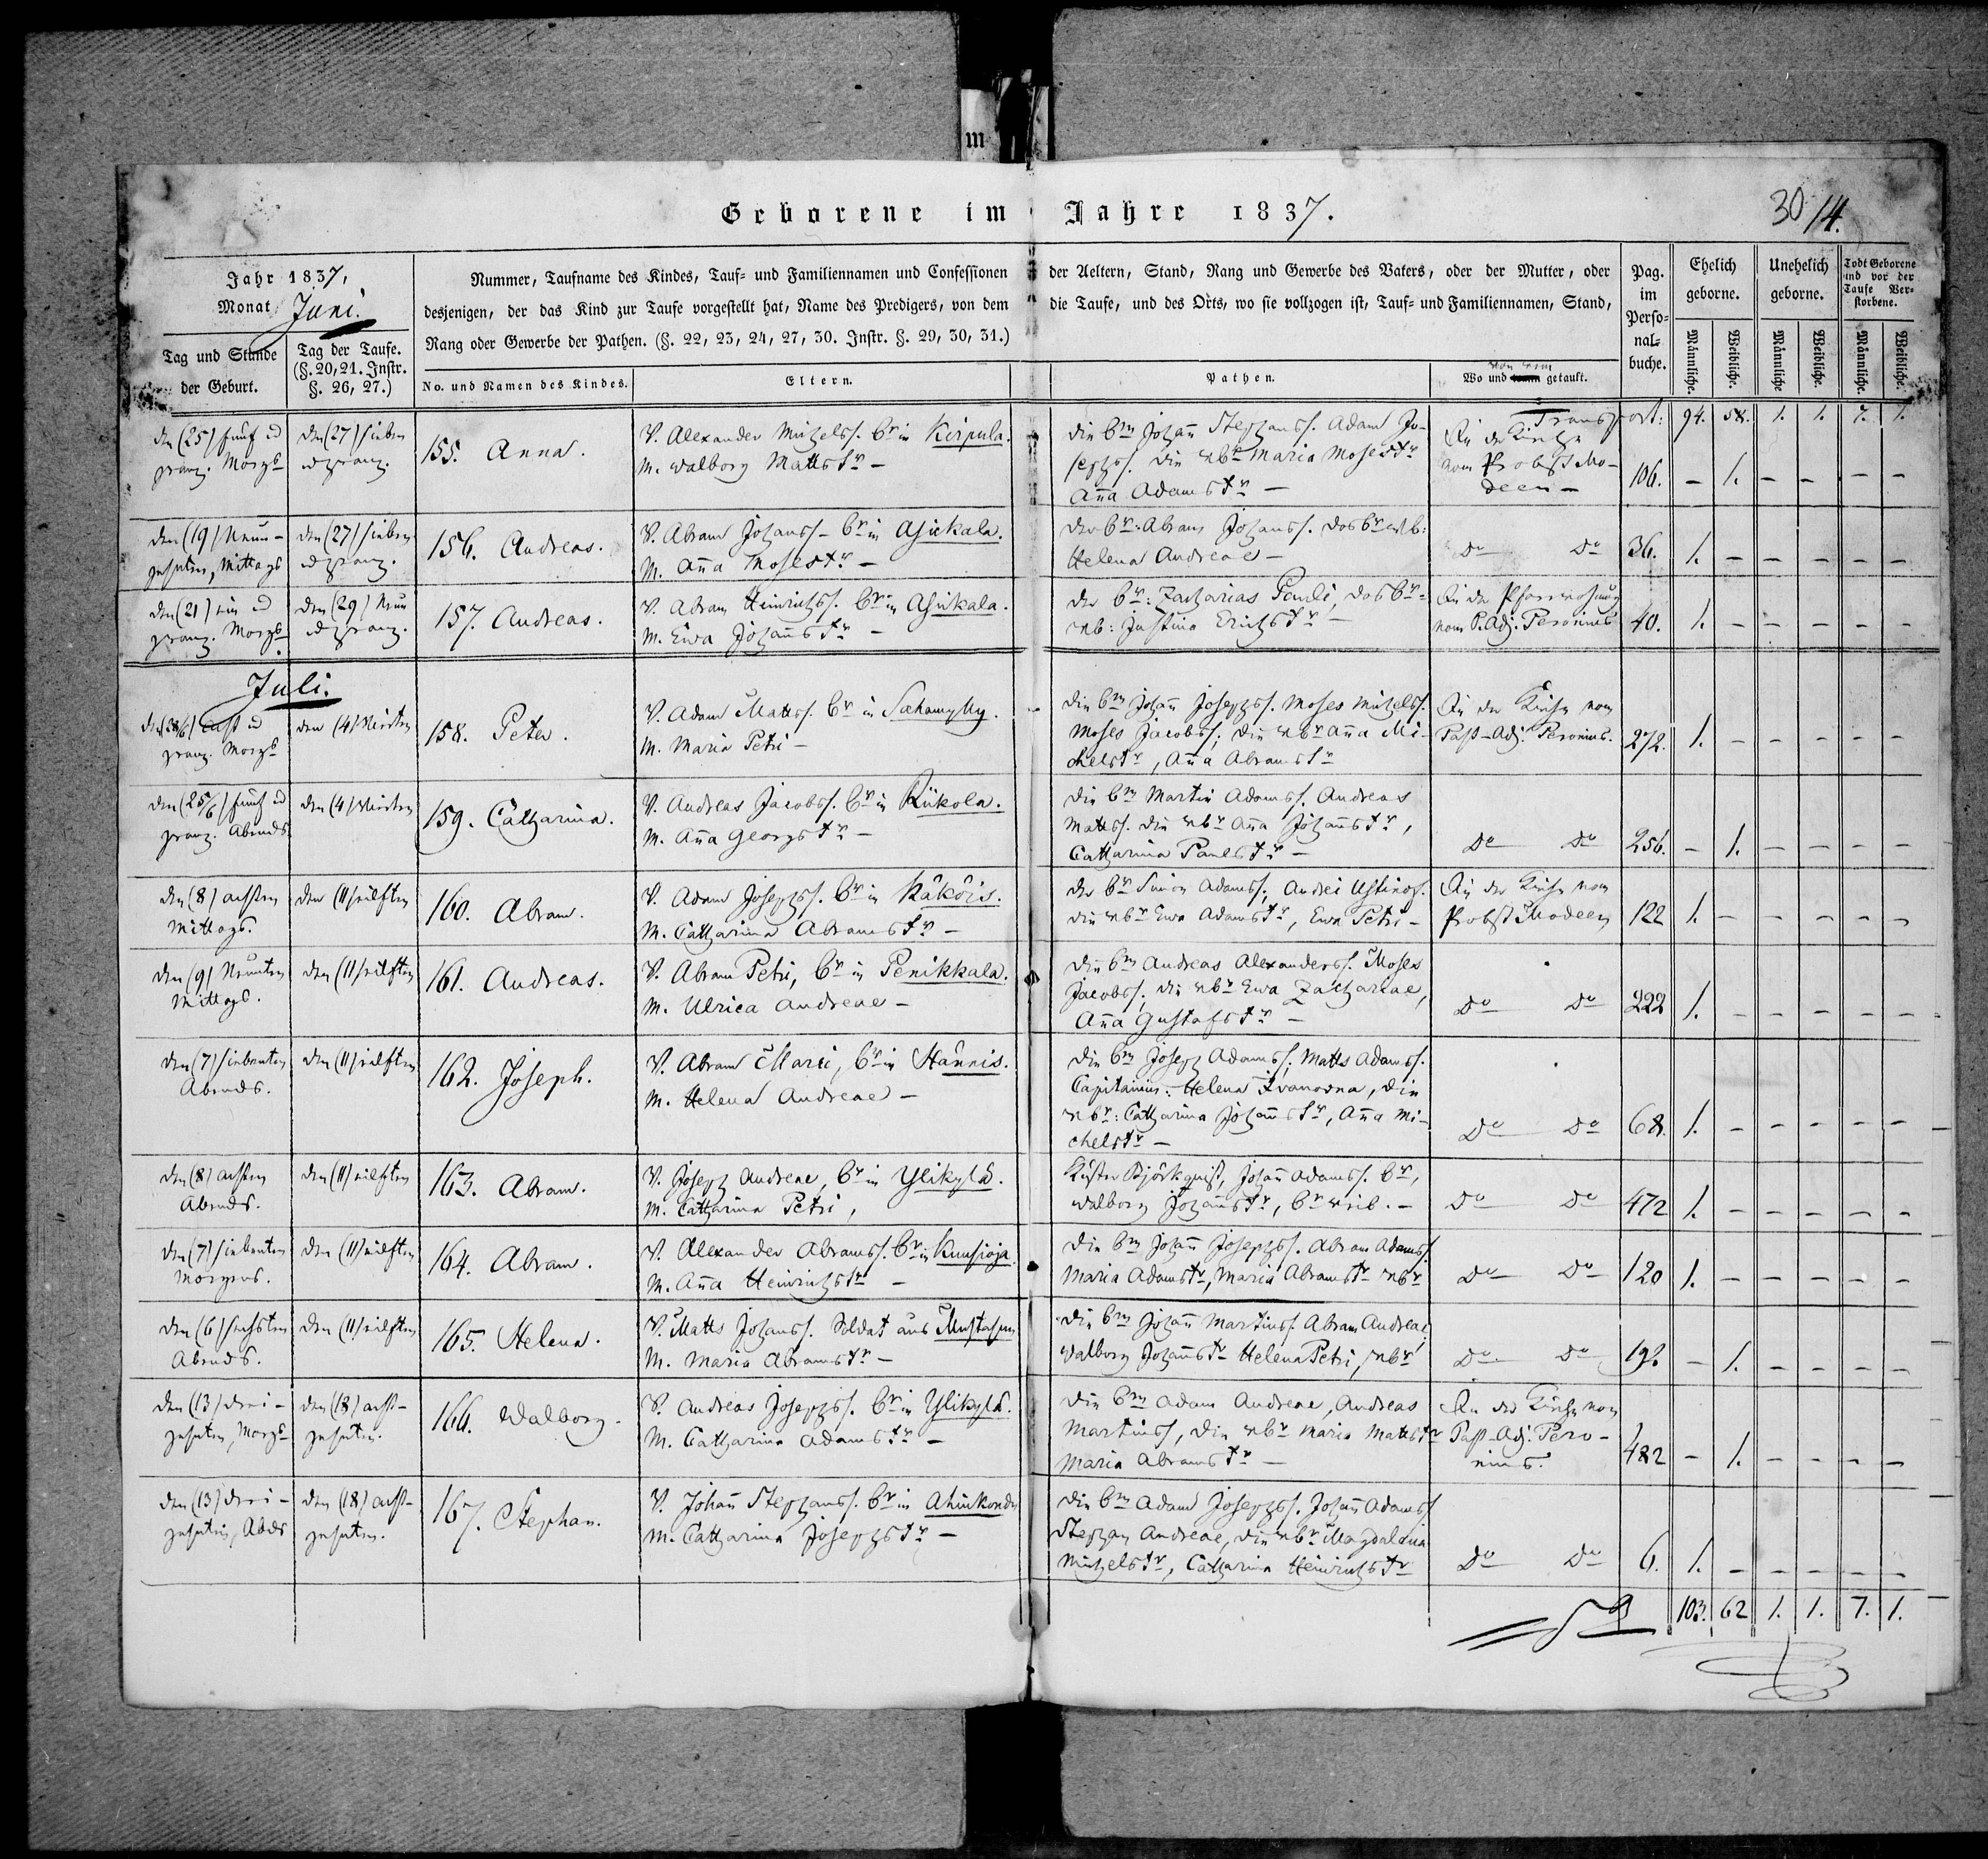 m
Geborene im Jahre 1837.
30/14.
Jahr 1837,
Monat Juni.
Tag und Stunde
der Geburt.
Tag der Taufe.
(§. 20, 21. Instr.
§. 26, 27.)
Nummer, Taufname des Kindes, Tauf- und Familiennamen und Confessionen der Aeltern, Stand, Rang und Gewerbe des Vaters, oder der Mutter, oder
desjenigen, der das Kind zur Taufe vorgestellt hat, Name des Predigers, von dem die Taufe, und des Orts, wo sie vollzogen ist, Tauf- und Familiennamen, Stand,
Rang oder Gewerbe der Pathen. (§. 22, 23, 24, 27, 30. Instr. §. 29, 30, 31.)
No. und Namen des Kindes.
Eltern.
Pathen.
Wo und von wem getauft.
Pag.
im
Perso-
nal-
buche.
Ehelich
geborne.
Unehelich
geborne.
Todt Geborene
und vor der
Taufe Ver-
storbene.
Männliche.
Weibliche.
Männliche
Weibliche.
Männliche.
Weibliche.
Transport: 94. 58. 1. 1. 7. 1.
den (25) fünf u
zwanz. Morgs
den (27) sieben
u zwanz.
155. Anna.
V. Alexander Michelss. br in Kirpula.
M. Walborg Mattstr –
Die brn Johan Stephanss. Adam Jo-
sephss. die wbr Maria Mosestr
Aña Adamstr –
In der Kirche
vom Probst Mo-
deen –
106. – 1. – – – –
den (19) Neun-
zehnten, Mittags
den (27) sieben
u zwanz.
156. Andreas.
V. Abram Johanss. – br in Asickala.
M. Aña Mosestr –
der br: Abram Johanss. das br wb:
Helena Andreae –
Do Do
36. 1. – – – – –
den (21) ein u
zwanz. Morgs
den (29) Neun
u zwanz.
157. Andreas.
V. Abram Heinrichss. br in Asikala.
M. Ewa Johanstr –
der br: Zacharias Pauli, das br=
wb: Justina Erichstr –
In der Pfarrwohnung
vom P. Adj. Peronius
40. 1. – – – – –
Juli.
den (28/6) acht u
zwanz. Morgs
den (4) Vierten
158. Peter.
V. Adam Mattss. br in Sakamylly.
M. Maria Petri –
Die brn Johan Josephss. Moses Michelss.
Moses Jacobss; die wbr Aña Mi-
chelstr, Aña Abramstr
In der Kirche vom
Past-Adj. Peronius.
272. 1. – – – – –
den (25/6) fünf u
zwanz. Abends
den (4) Vierten
159. Catharina.
V. Andreas Jacobss. br in Rükola.
M. Aña Georgstr –
Die brn Martin Adamss. Andreas
Mattss. die wbr Aña Johanstr,
Catharina Paulstr –
Do Do
256. – 1. – – – –
den (8) achten
Mittags.
den (11) eilften
160. Abram.
V. Adam Josephss. br in Käköis.
M. Catharina Abramstr –
der br Simon Adamss; Andrei Ustinof.
die wbr Ewa Adamstr, Ewa Petri –
In der Kirche vom
Probst Modeen
122 1. – – – – –
den (9) Neunten
Mittags.
den (11) eilften
161. Andreas.
V. Abram Petri, br in Penikkala.
M. Ulrica Andreae –
Die brn Andreas Alexanderss. Moses
Jacobss; die wbr Ewa Zachariae,
Aña Gustafstr –
Do Do
222 1. – – – – –
den (7) siebenten
Abends.
den (11) eilften
162. Joseph.
V. Abram Marci, br in Hannis.
M. Helena Andreae –
Die brn Joseph Adamss; Matts Adamss.
Capitainin: Helena Ivanovna, die
wbr: Catharina Johanstr, Aña Mi-
chelstr –
Do Do
68. 1. – – – – –
den (8) achten
Abends.
den (11) eilften
163. Abram.
V. Joseph Andreae, br in Ylikylä.
M. Catharina Petri,
Küster Björkqvist, Johan Adamss. br,
Walborg Johanstr, br weib. –
Do Do
472 1. – – – – –
den (7) siebenten
Morgens.
den (11) eilften
164. Abram.
V. Alexander Abramss. br in Kuusioja.
M. Aña Heinrichstr –
Die brn Johan Josephss. Abram Adamss.
Maria Adamstr, Maria Abramstr wbr
Do Do
120 1. – – – – –
den (6) sechsten
Abends.
den (11) eilften
165. Helena.
V. Matts Johanss. Soldat aus
M. Maria Abramstr –
Die brn Johan Martinss. Abram Andreae
Walborg Johanstr Helena Petri, wbr
Do Do
192 – 1. – – – –
den (13) drei-
zehnten, Morgs
den (18) acht-
zehnten.
166. Walborg.
V. Andreas Josephss. br in Ylikylä.
M. Catharina Adamstr –
Die brn Adam Andreae, Andreas
Martinss, die wbr Maria Mattstr
Maria Abramstr –
In der Kirche vom
Past-Adj. Pero-
nius.
482 – 1. – – – –
den (13) drei-
zehnten, Abds
den (18) acht-
zehnten.
167. Stephan.
V. Johan Stephanss. br in
M. Catharina Josephstr –
Die brn Adam Josephss. Johan Adamss
Stephan Andreae, die wbr Magdalena
Michelstr, Catharina Heinrichstr
Do Do
6. 1. – – – – –
103. 62 1. 1. 7. 1.